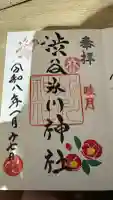 奉拝
睦月
渋谷氷川神社
令和八年一月廿七日